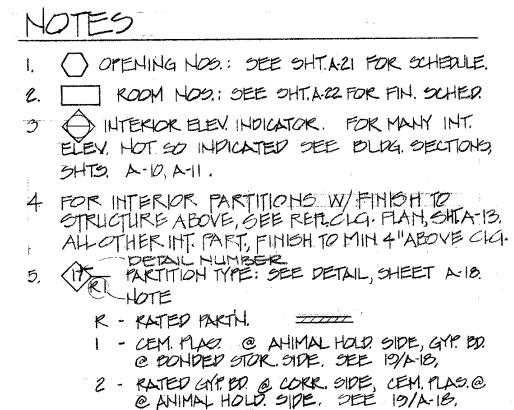 NOTES
1. OPENING NOS.: SEE SHT. A-21 FOR SCHEDULE.
2. ROOM NOS.: SEE SHT. A-22 FOR FIN. SCHED.
3 INTERIOR ELEV. INDICATOR. FOR MANY INT.
ELEV. NOT SO INDICATED SEE BLDG. SECTIONS,
SHTS. A-10, A-11.
4 FOR INTERIOR PARTITIONS W/ FINISH TO
STRUCTURE ABOVE, SEE REFL. CLG. PLAN, SHT. A-13.
ALL OTHER INT. PART, FINISH TO MIN 4" ABOVE CLG.
DETAIL NUMBER
5. 17 PARTITION TYPE: SEE DETAIL, SHEET A-18.
R1 NOTE
R - RATED PARTN.
1 - CEM. PLAS. @ ANIMAL HOLD SIDE, GYP. BD.
@ BONDED STOR. SIDE. SEE 19/A-18,
2 - RATED GYP BD @ CORR. SIDE, CEM. PLAS. @
@ ANIMAL HOLD. SIDE. SEE 19/A-18.